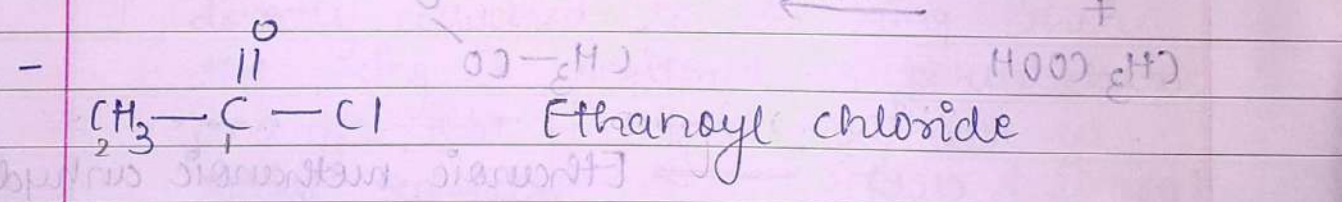 O
||
- CH3 — C — Cl Ethanoyl chloride
2 1